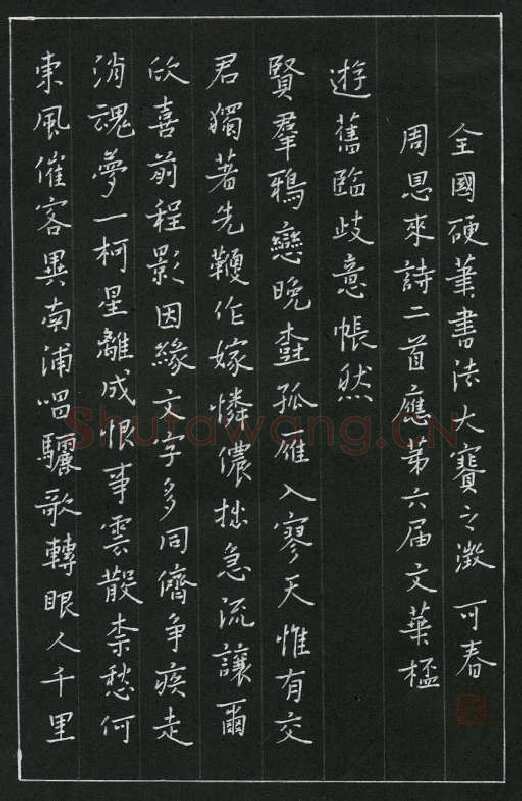 東風催客異南浦唱驪歌轉眼人千里
消魂夢一柯星離成恨事雲散柰愁何
欣喜前程影因緣文字多同儕争疾走
君獨著先鞭作嫁憐儂拙急流讓爾
賢羣鴉戀晚樹孤雁入寥天惟有交
遊舊臨歧意悵然
周恩來詩二首應第六届文華杯
全國硬筆書法大賽之徵 可春
Shufawang.CN